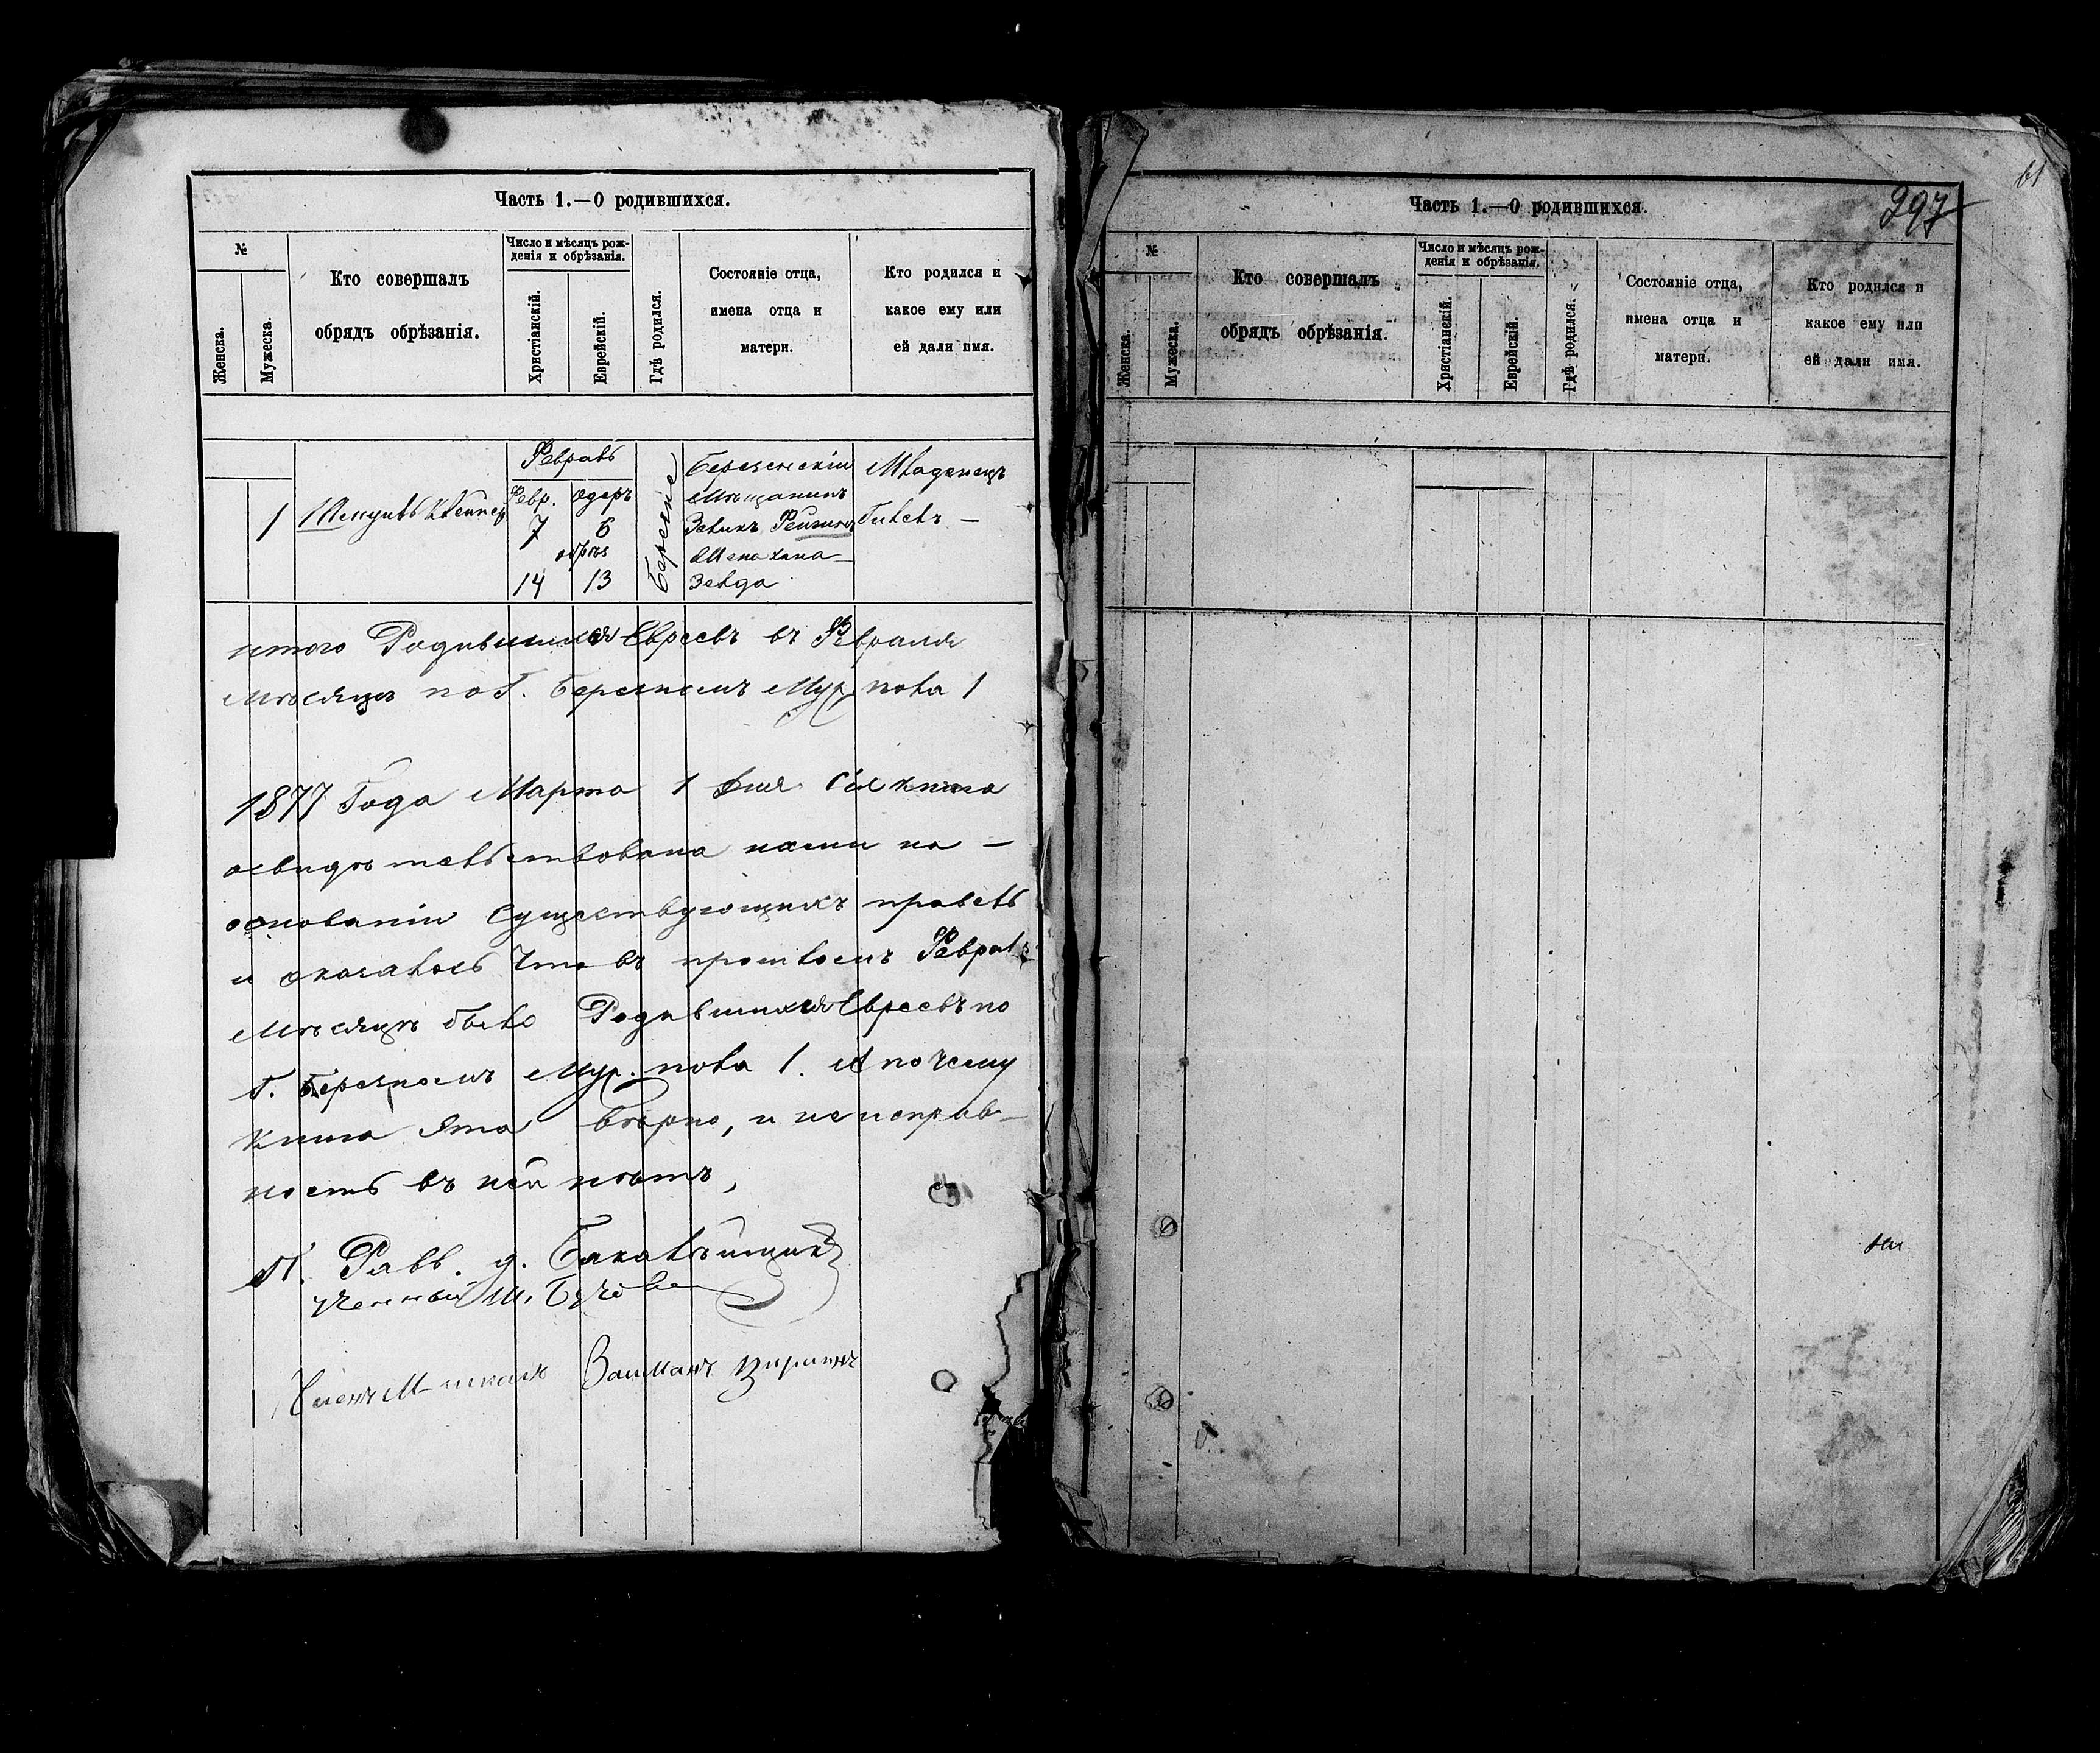 Часть 1.—О родившихся.
№
Женска.
Мужеска.
Кто совершалъ
обрядъ обрѣзанія.
Число и мѣсяцъ рож-
денія и обрѣзанія.
Христіанскій.
Еврейскій.
Гдѣ родился.
Состояніе отца,
имена отца и
матери.
Кто родился и
какое ему или
ей дали имя.
1
Февр.
7
14
Одеръ
6
обрѣз
13
Березне
Березенскій
Мѣщанинъ
мать Хана
Зельда
Младенецъ
итого Родившихся Евреевъ въ Февралѣ
Мѣсяцѣ по Г. Березномъ Муж. пола 1
1877 Года Марта 1 дня Сія книга
освидѣтельствована нами на —
основаніи Существующихъ правилъ
и оказалось Что въ прошломъ Февралѣ
Мѣсяцѣ было Родившихся Евреевъ по
Г. Березномъ Муж. пола 1. А почему
Книга эта Вѣрно, и неисправ-
ность въ ней нѣтъ,
Равв.
Ученный М.
Часть 1.—О родившихся.
297
61
№
Женска.
Мужеска.
Кто совершалъ
обрядъ обрѣзанія.
Число и мѣсяцъ рож-
денія и обрѣзанія.
Христіанскій.
Еврейскій.
Гдѣ родился.
Состояніе отца,
имена отца и
матери.
Кто родился и
какое ему или
ей дали имя.